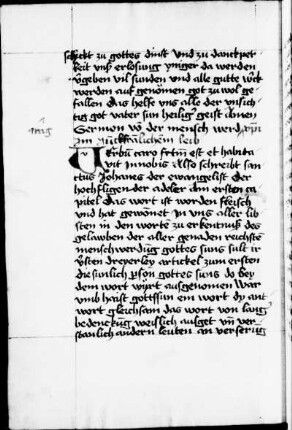 schickt zu gottes dinst und zu danckper
keit unser erlosung ynger da werden
vergeben vil sunden und alle gute werck
werden auf genomen got zu wol ge
fallen Das helf uns alle der unsich
tig got vater sun heiliger geist amen
Sermon von der mensch werdung
im Junckfrålichem leib
Verbum caro factum est et habita
vit in nobis Also schreibt san
ctus Johanes der ewangelist der
hochfligender adeler am ersten ca
pitel Das wort ist worden fleisch
und hat gewonet in uns aller lib
sten in dem worte zu erkentnuß des
gelawben der aller genaden reichste
menschwerdung gottes suns sult ir
wissen dreyerley artickel zum ersten
die sinlich person gottes suns do bey
dem wort wirt ausgenomen War
umb haist gottssun ein wort dy ant
wort gleichsam das wort von lang
bedenckung weislich ausget und ver
stantlich andern leuten an